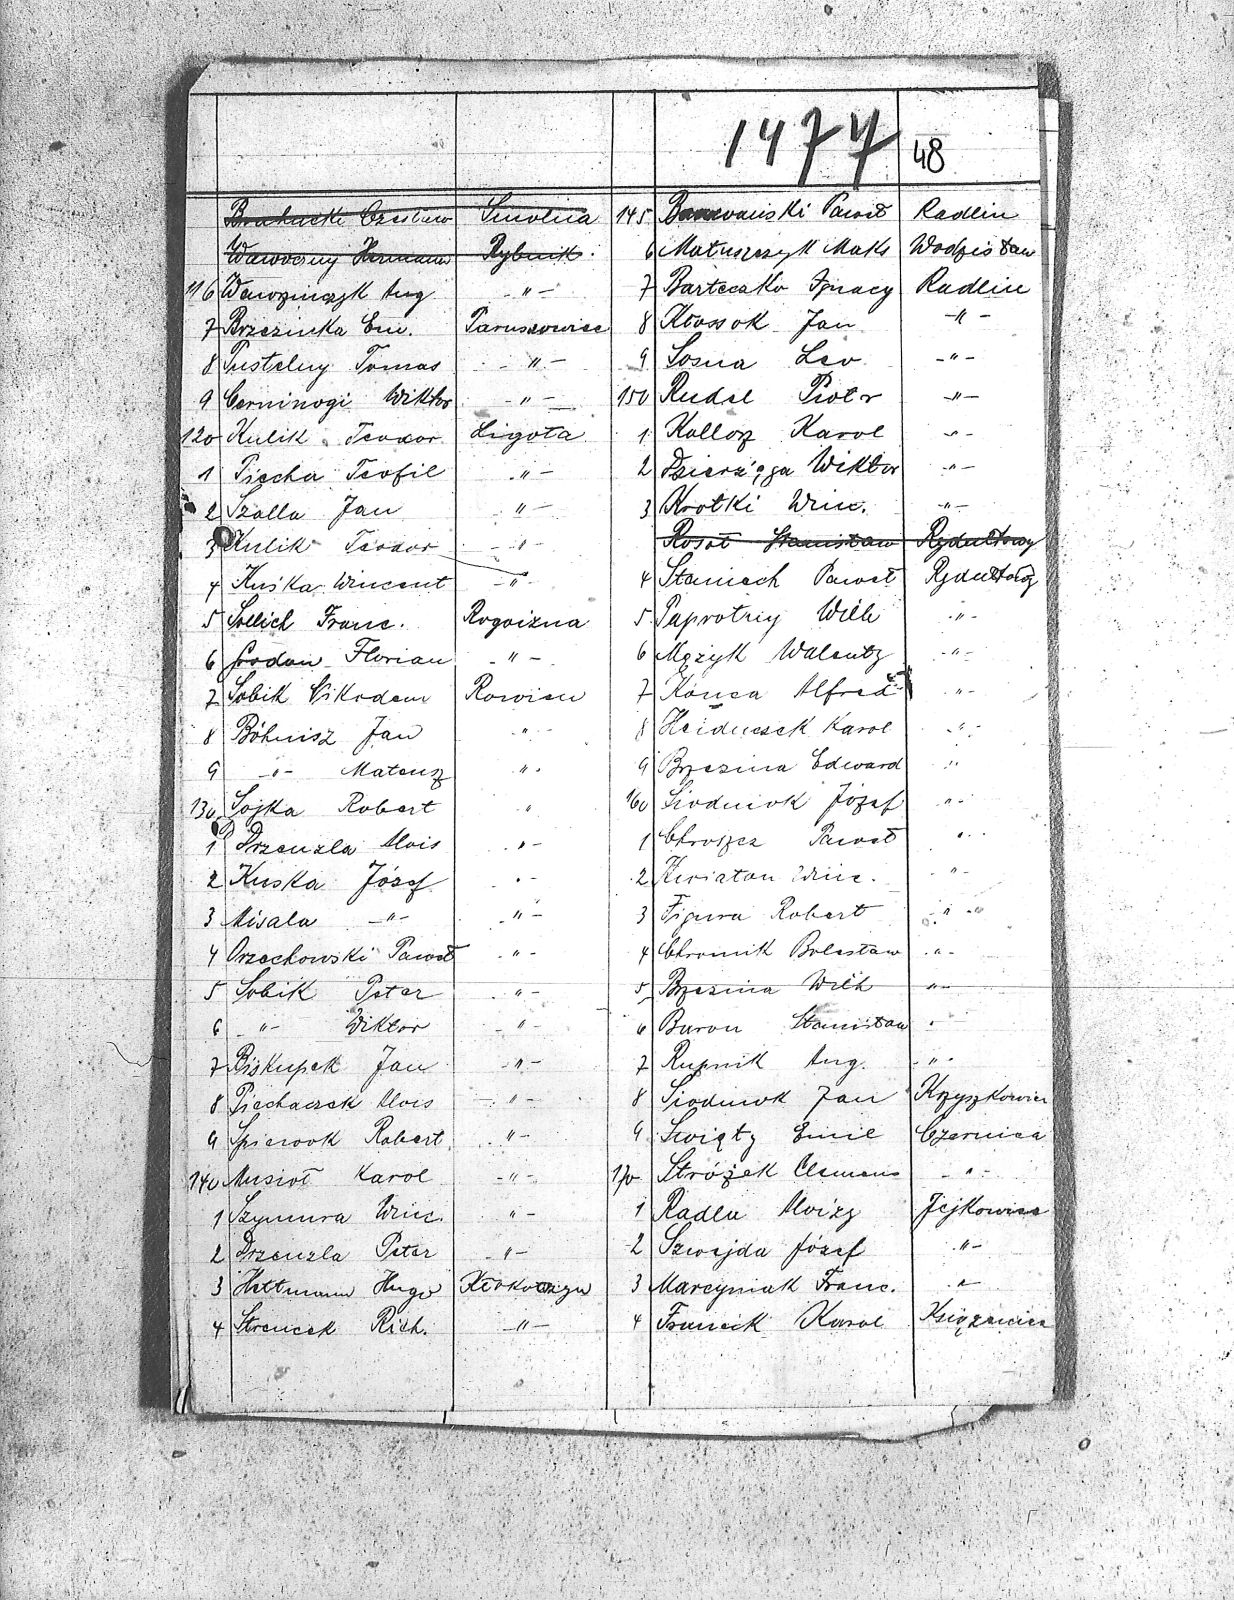 1477 48
Bruhucki Czesław Smolna
Wawoczny Hermann Rybnik.
116 Wawrzinczyk Aug. -"-
7 Brzezinka Em. Paruszowiec
8 Pustelny Tomas -"-
9 Cerninogi Wiktor -"-
120 Kulik Teodor Ligota
1 Piecha Teofil -"-
2 Szalla Jan -"-
3 Kulik Teodor -"-
4 Kuśka Wincent -"-
5 Sollich Franc. Rogoizna
6 Florian -"-
7 Sobik Nikodem Rowien
8 Böhnisz Jan -"-
9 -"- Mateusz "
130 Sojka Robert "
1 Drzenzla Alois -"-
2 Kuska Józef -"-
3 Misala -"- -"-
4 Orzechowski Paweł -"-
5 Sobik Peter -"-
6 -"- Wiktor -"-
7 Biskupek Jan -"-
8 Piechaczek Alois -"-
9 Spiewok Robert -"-
140 Musioł Karol -"-
1 Szymura Winc. -"-
2 Drzenzla Peter -"-
3 Hettmann Hugo Kłokoczyn
4 Strencek Rich. -"-
145 Paweł Radlin
6 Matuszczyk Maks Wodzisław
7 Barteczko Ignacy Radlin
8 Kłossok Jan -"-
9 Sosna Leo -"-
150 Rudel Piotr -"-
1 Kollorz Karol -"-
2 Dzierżęga Wiktor -"-
3 Krotki Winc. -"-
Rosoł Stanisław Rydułtowy
4 Staniech Paweł Rydułtowy
5 Paprotny Wilh "
6 Mężyk Walenty -"-
7 Konca Alfred -"-
8 Heiduczek Karol -"-
9 Brzezina Edward "
160 Siodmok Józef -"-
1 Chroszcz Paweł "
2 Kwiaton Winc. -"-
3 Figura Robert -"-
4 Chromik Bolesław -"-
5 Brzezina Wilh -"-
6 Buron Stanisław "
7 Rupnik Aug. "
8 Siodmok Jan Krzyszkowiec
9 Święty Emil Czernica
170 Stróżek Clemens -"-
1 Radla Alojzy Jejkowice
2 Szwejda Józef -"-
3 Marcyniak Franc. "
4 Franeik Karol Książenice